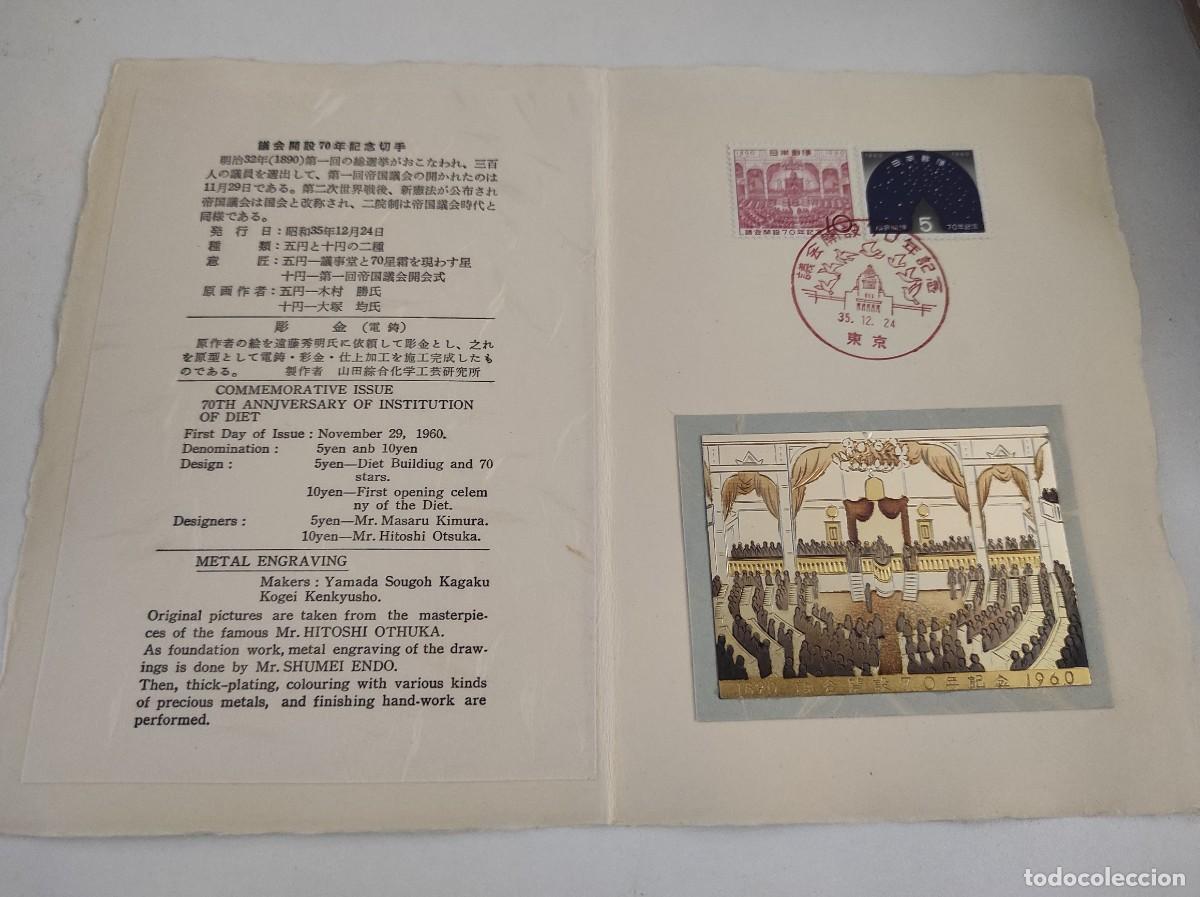 議会開設70年記念切手
明治32年(1890)第一回の総選挙がおこなわれ、三百
人の議員を選出して、第一回帝国議会の開かれたのは
11月29日である。第二次世界戦後、新憲法が公布され
帝国議会は国会と改称され、二院制は帝国議会時代と
同様である。
発行日:昭和35年12月24日
種類:五円と十円の二種
意匠:五円—議事堂と70星霜を現わす星
十円—第一回帝国議会開会式
原画作者:五円—木村 勝氏
十円—大塚 均氏
彫金(電鋳)
原作者の絵を遠藤秀明氏に依頼して彫金とし、之れ
を原型として電鋳・彩金・仕上加工を施工完成したも
のである。 製作者 山田綜合化学工芸研究所
COMMEMORATIVE ISSUE
70TH ANNJVERSARY OF INSTITUTION
OF DIET
First Day of Issue : November 29, 1960.
Denomination : 5yen anb 10yen
Design : 5yen—Diet Buildiug and 70
stars.
10yen—First opening celem
ny of the Diet.
Designers : 5yen—Mr. Masaru Kimura.
10yen—Mr. Hitoshi Otsuka.
METAL ENGRAVING
Makers : Yamada Sougoh Kagaku
Kogei Kenkyusho.
Original pictures are taken from the masterpie-
ces of the famous Mr. HITOSHI OTHUKA.
As foundation work, metal engraving of the draw-
ings is done by Mr. SHUMEI ENDO.
Then, thick-plating, colouring with various kinds
of precious metals, and finishing hand-work are
performed.
1890 日本郵便 1960
10
議会開設70年記念
1890 日本郵便 1960
5
議会開設 70年記念
議会開設70年記念
35.12.24
東京
1890 議会開設70年記念 1960
todocoleccion